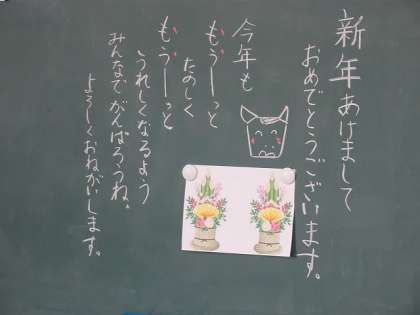 新年あけまして
おめでとうございます。
今年も
もうーっと
たのしく
もうーっと
うれしくなるよう
みんなでがんばろうね。
よろしくおねがいします。